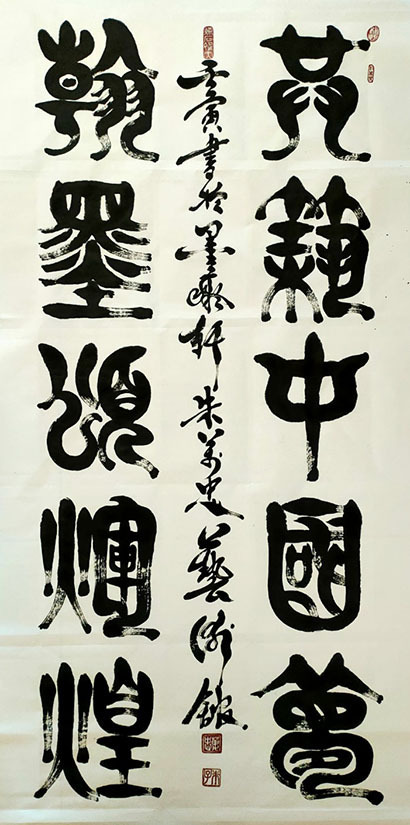 共中國夢
壬寅書於墨軒朱萬忠藝術館
翰墨頌輝煌